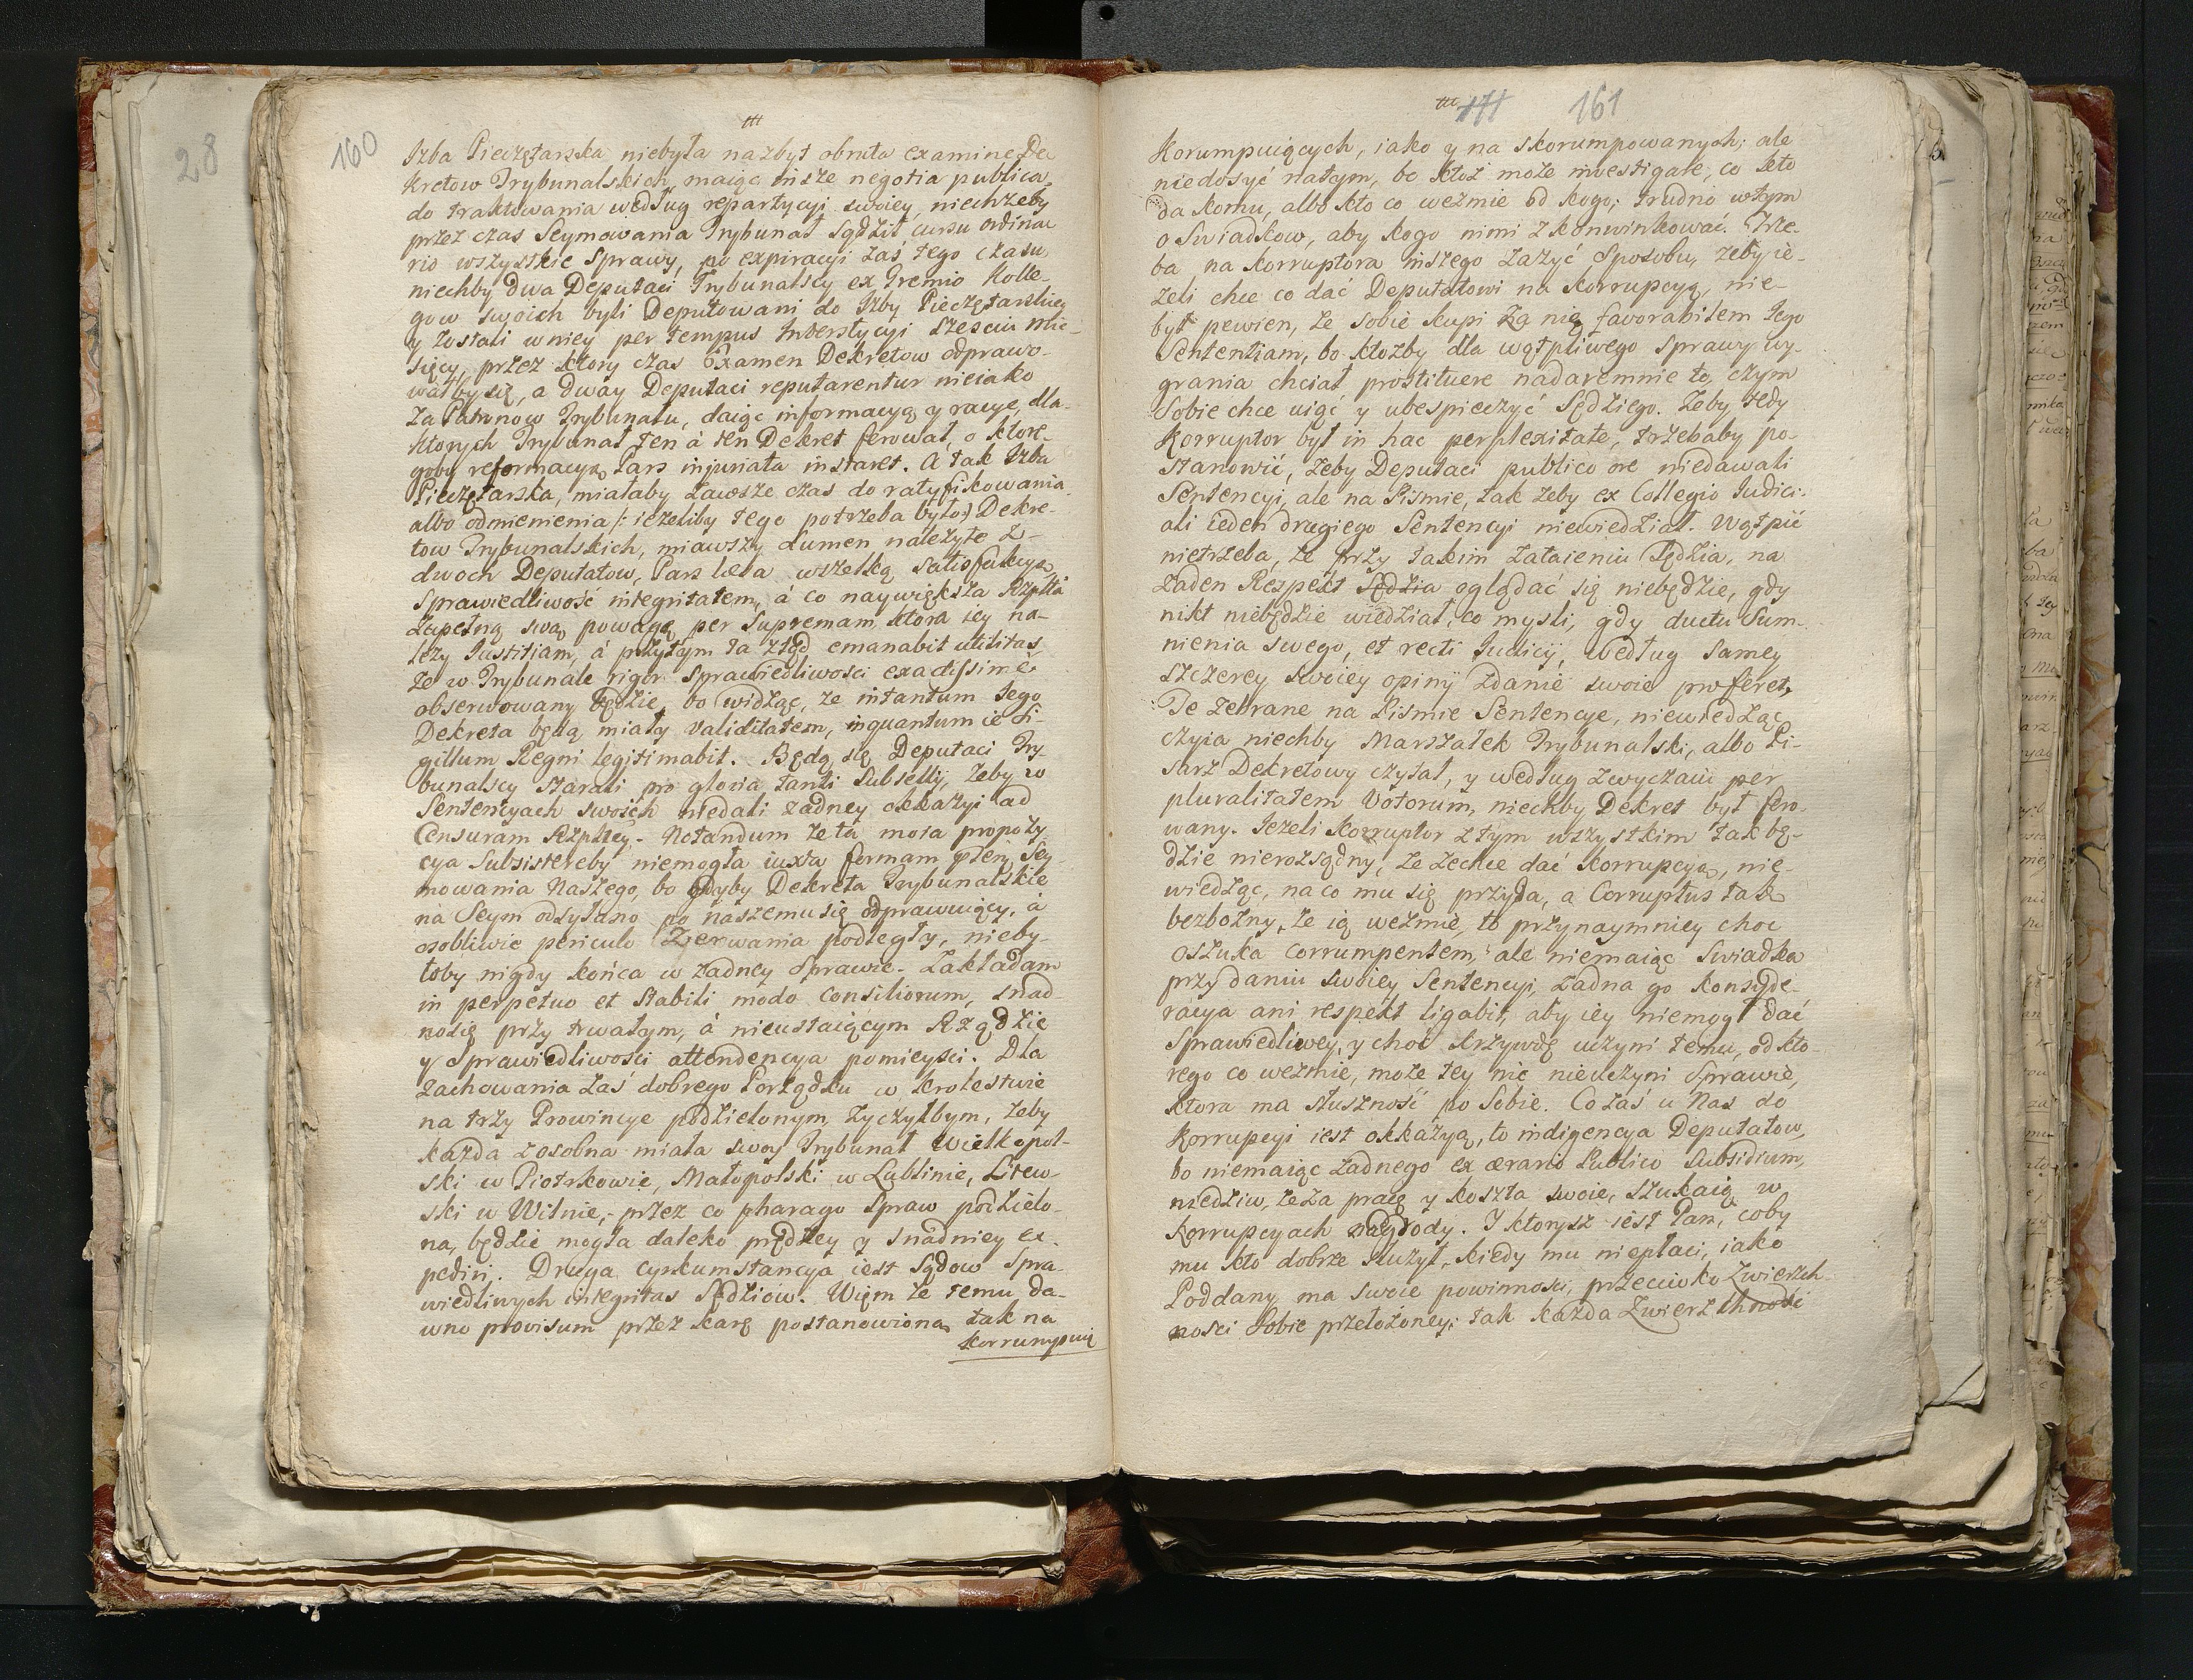 28
160
Izba Pieczętarska niebyła nazbyt obruta examine De
kretow Trybunalskich, maiąc insze negotia publica,
do traktowania według repartycyi swoiey, niechżeby
przez czas Seymowania Trybunał Sądził cursu ordina
rio wszystkie Sprawy, po expiracyi zaś tego czasu,
niechby dwa Deputaci Trybunalscy ex Gremio Kolle-
gow swoich byli Deputowani do Izby Pieczętarskiey
y zostali w niey per tempus Interstycyi Szesciu Mie-
sięcy, przez ktory czas Examen Dekretow odprawo-
wałby się, a dway Deputaci reputarentur nieiako
za Patronow Trybunału, daiąc informacyą y racye, dla-
ktorych Trybunał ten á ten Dekret ferował, o ktore-
goby reformacyą Pars injuriata instaret. A tak Izba
Pieczętarska, miałaby zawsze czas do ratyfikowania
albo odmienienia /: ieżeliby tego potrzeba było :/ Dekre-
tow Trybunalskich, miawszy Lumen należyte z-
dwoch Deputatow, Pars læsa wszelką satisfakcyą
Sprawiedliwość integritatem, á co naywiększa Rzplta
zupełną swą powagę per Supremam ktora iey na-
leży Iustitiam, á przytym ta ztąd emanabit utilitas,
że w Trybunale rigor Sprawiedliwości exactissimè
obserwowany będzie, bo widząc, że intantum tego
Dekreta będą miały validitatem, inquantum ie Si-
gillum Regni legitimabit. Będą się Deputaci Try-
bunalscy starali pro gloria tanti Subsellij, żeby w
Sentencyach swoich niedali żadney okkazyi ad
Censuram Rzpltey. Notandum że ta moia propozy-
cya Subsistereby niemogła iuxta formam Sey
mowania Naszego, bo gdyby Dekreta Trybunalskie
na Seym odsyłano po naszemu się odprawuiący, á
osobliwie periculo Zerwania podległy, nieby-
łoby nigdy końca w żadney Sprawie. Zakładam
in perpetuo et stabili modo Consiliorum, snad-
no się przy trwałym, á nieustaiącym Rządzie
y Sprawiedliwości attendencya pomieści. Dla
zachowania zaś dobrego Porządku w Krolestwie
na trzy Prowincye podzielonym, życzyłbym, żeby
każda zosobna miała swoy Trybunał Wielkopol-
ski w Piotrkowie, Małopolski w Lublinie, Litew-
ski w Wilnie, przez co pharago Spraw podzielo-
na, będzie mogła daleko prędzey y snadniey ex-
pediri. Druga cyrkumstancya iest Sądow Spra-
wiedliwych integritas Sędziow. Wiem że temu da-
wno provisum przez karę postanowioną tak na
korrumpuią
171 161
Korumpuiących, iako y na skorumpowanych; ale
niedosyć natym, bo ktoż może investigare, co kto
da komu, albo kto co weźmie od kogo; trudno wtym
o Swiadkow, aby kogo nimi zkonwinkować. Trze-
ba na Korruptora inszego zażyć Sposobu, żeby ie-
żeli chce co dać Deputatowi na Korrupcyą, nie-
był pewien, że sobie kupi zą nię favorabilem Iego
Sententiam, bo ktożby dla wątpliwego sprawy wy-
grania chciał prostituere nadaremnie to, czym
Sobie chce uiąć y ubespieczyć Sędziego. Zeby tedy
Korruptor był in hac perplexitate, trzebaby po-
stanowić, żeby Deputaci publico ore niedawali
Sentencyi, ale na Pismie, tak żeby ex Collegio Iudici-
ali ieden drugiego Sentencyi niewiedział. Wątpić
nietrzeba, że przy takim zataieniu Sędzia, na
żaden Respekt Sędzia oglądać się niebędzie, gdy
nikt niebędzie wiedział, co mysli, gdy ductu Sum-
nienia swego, et recti Iudicij, według samey
szczerey swoiey opinij zdanie swoie proferet,
Te zebrane na Pismie Sentencye, niewiedząc
czyia niechby Marszałek Trybunalski, albo Pi-
sarz Dekretowy czytał, y według zwyczaiu per
pluralitatem Votorum, niechby Dekret był fero-
wany. Ieżeli Korruptor z tym wszystkim tak bę-
dzie nierozsądny, że zechce dać Korrupcyą, nie-
wiedząc, na co mu się przyda, a Corruptus tak
bezbożny, że ią weźmie, to przynaymniey choć
oszuka Corrumpentem, ale niemaiąc Swiadka
przy daniu swoiey Sentencyi, żadna go konsyde-
racya ani respekt ligabit, aby iey niemogł dać
Sprawiedliwey, y choć krzywdę uczyni temu, od kto-
rego co weźmie, może iey nie nieuczyni Sprawie,
ktora ma słuszność po Sobie. Co zaś u Nas do
Korrupcyi iest okkazyą, to indigencya Deputatow,
bo niemaiąc żadnego ex ærario Publico Subsidium,
niedziw, że za pracę y koszta swoie, szukaią w
Korrupcyach nagrody. Y ktorysz iest Pan, coby
mu kto dobrze służył, kiedy mu niepłaci, iako
Poddany ma swoie powinności, przeciwko Zwierzch-
ności Sobie przełożoney; tak każda Zwierzchność